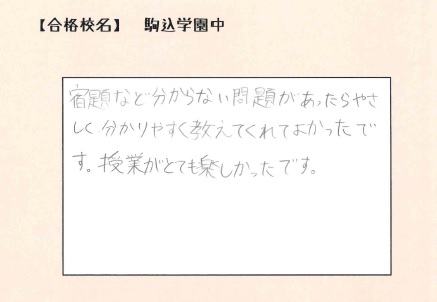 【合格校名】 駒込学園中
宿題など分からない問題があったらやさ
しく分かりやすく教えてくれてよかったで
す。授業がとても楽しかったです。